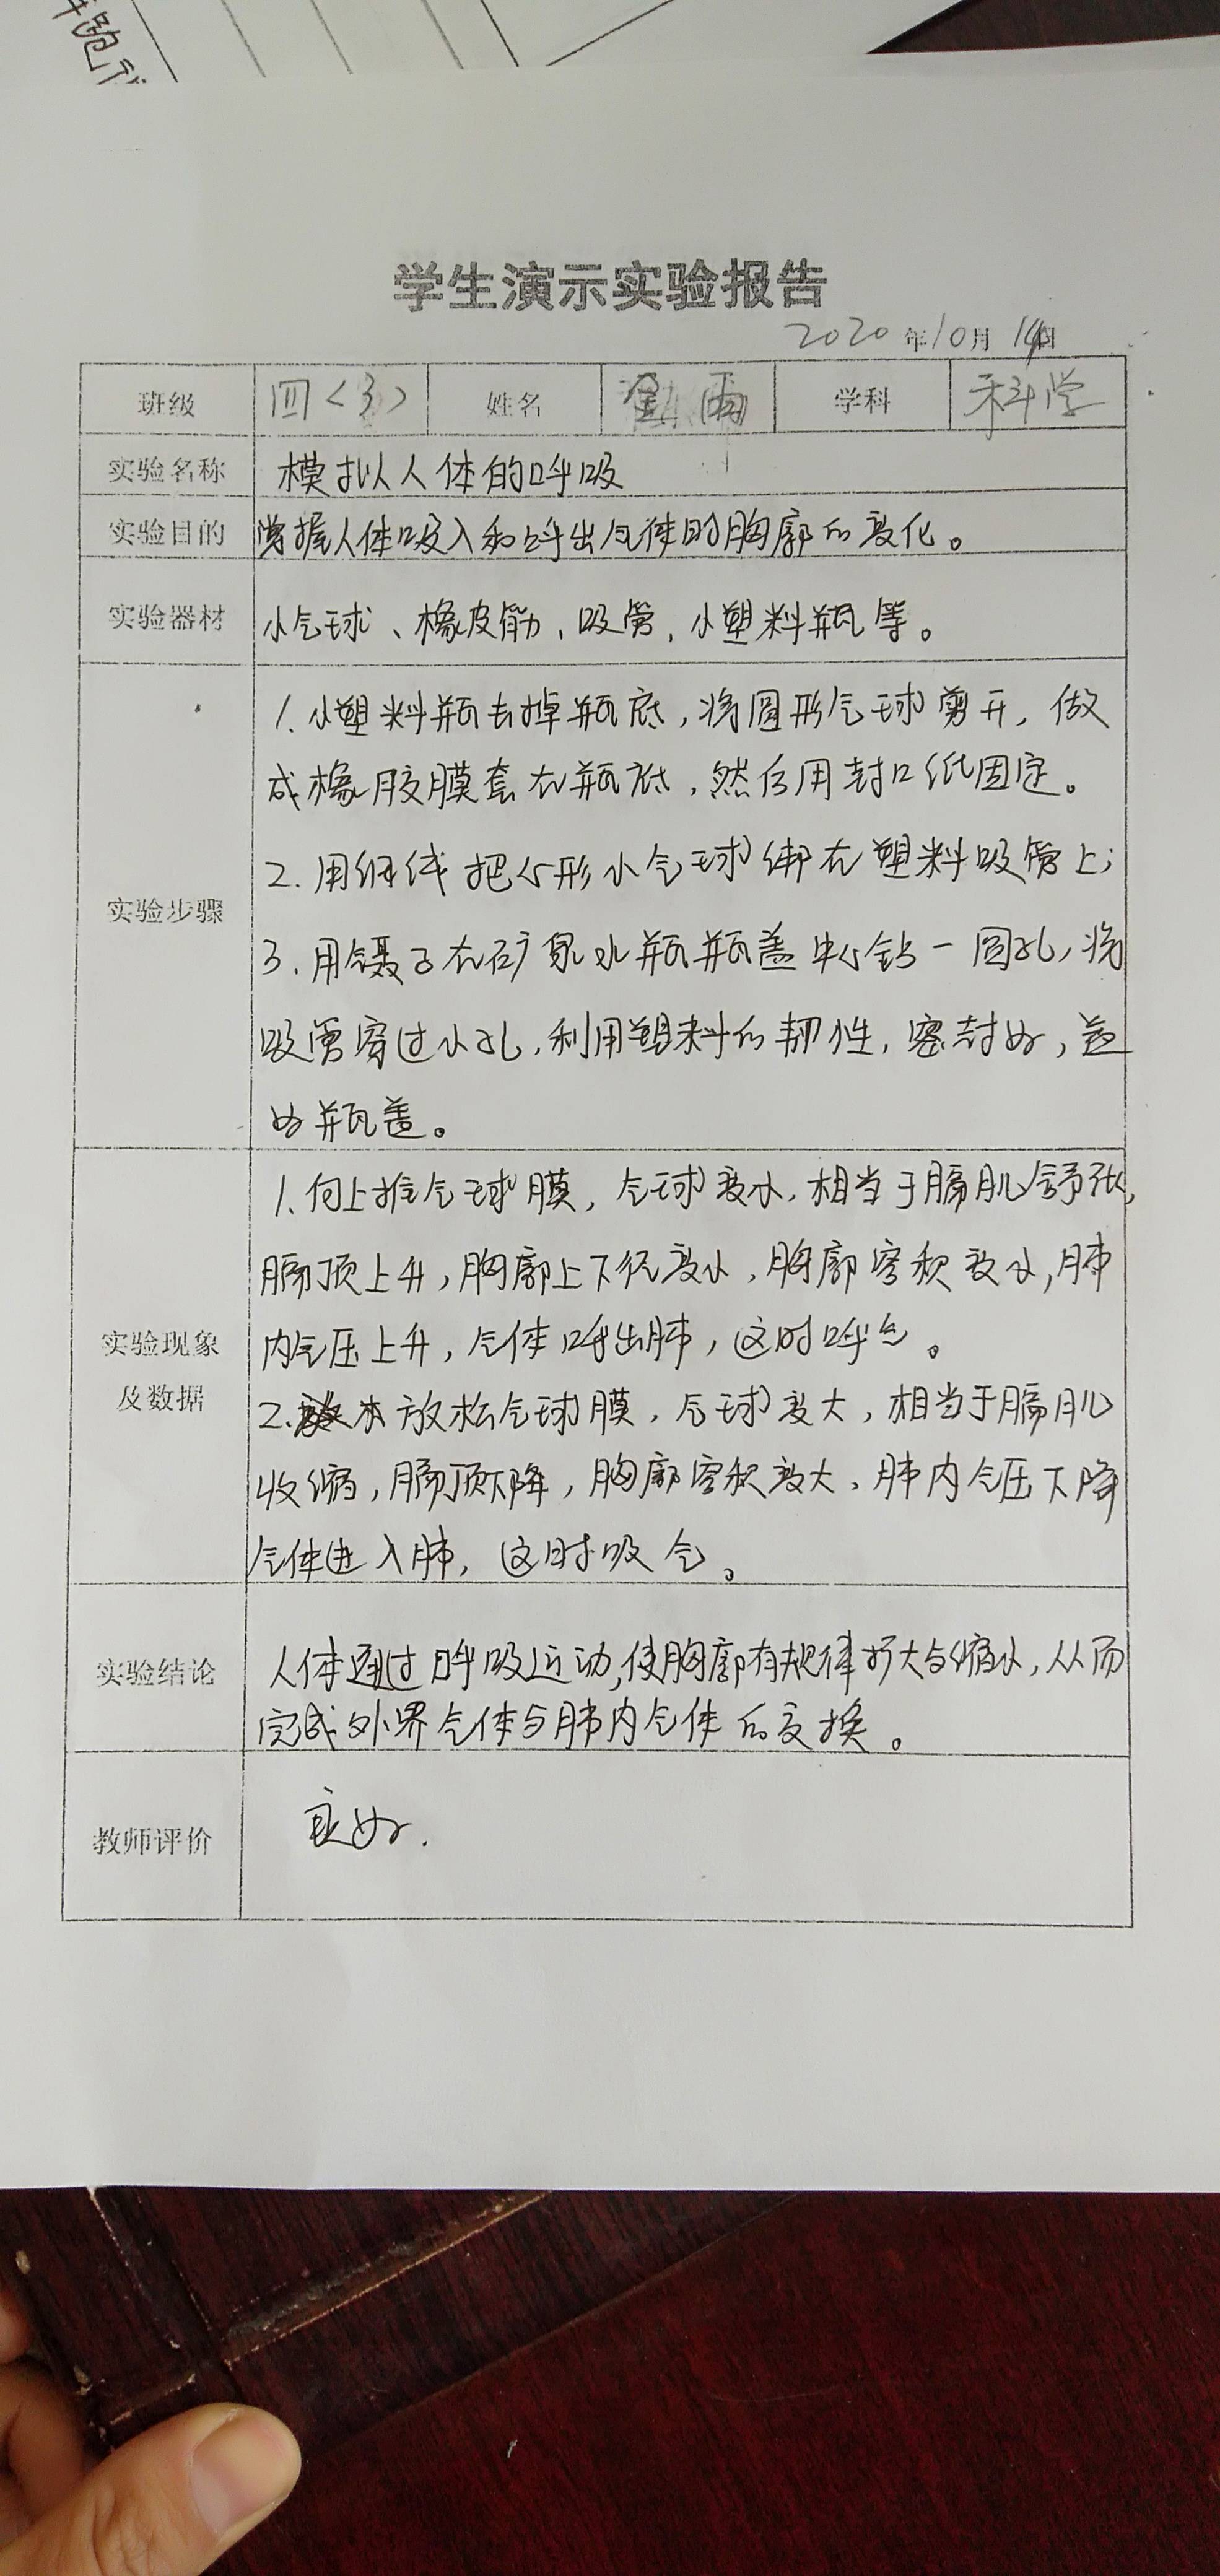 学生演示实验报告
2020年10月14日
班级 四<3> 姓名 雨 学科 科学
实验名称 模拟人体的呼吸
实验目的 掌握人体吸入和呼出气体时胸廓的变化。
实验器材 小气球、橡皮筋、吸管、小塑料瓶等。
实验步骤
1.小塑料瓶去掉瓶底，将圆形气球剪开，做
成橡胶膜套在瓶底，然后用封口纸固定。
2.用细线把心形小气球绑在塑料吸管上；
3.用镊子在矿泉水瓶瓶盖中心钻一圆孔，将
吸管穿过小孔，利用塑料的韧性，密封好，盖
好瓶盖。
实验现象
及数据
1.向上推气球膜，气球变小，相当于膈肌舒张，
膈顶上升，胸廓上下径变小，胸廓容积变小，肺
内气压上升，气体呼出肺，这时呼气。
2.放松气球膜，气球变大，相当于膈肌
收缩，膈顶下降，胸廓容积变大，肺内气压下降
气体进入肺，这时吸气。
实验结论
人体通过呼吸运动，使胸廓有规律扩大与缩小，从而
完成外界气体与肺内气体的交换。
教师评价 良好.